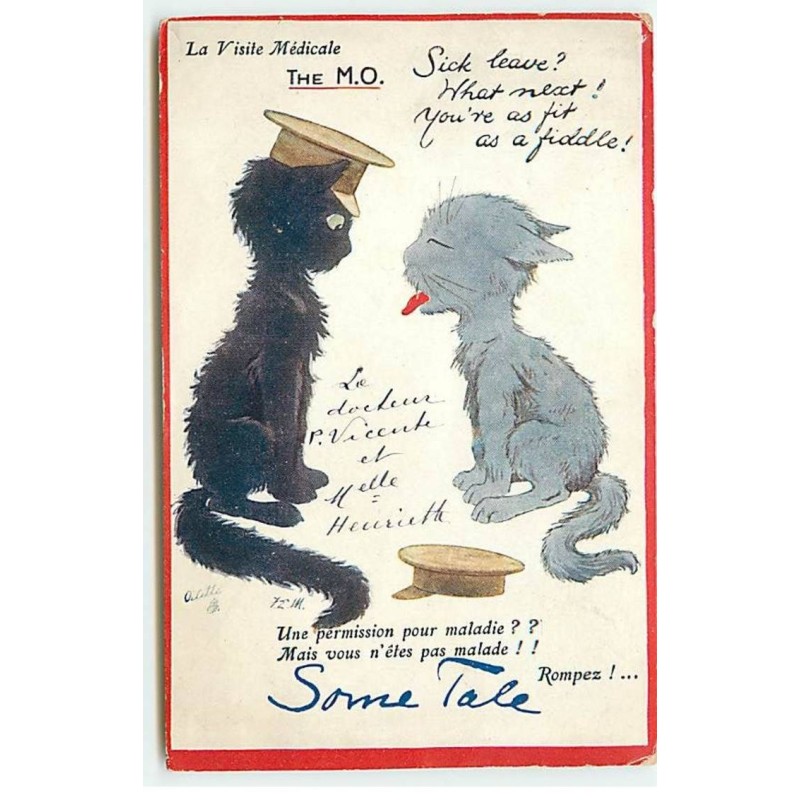 La Visite Médicale
THE M.O.
Sick leave?
What next!
You're as fit
as a fiddle!
Le
docteur
P. Vicente
et
Melle
Henriette
Une permission pour maladie ? ?
Mais vous n'êtes pas malade ! !
Rompez !...
Some Tale